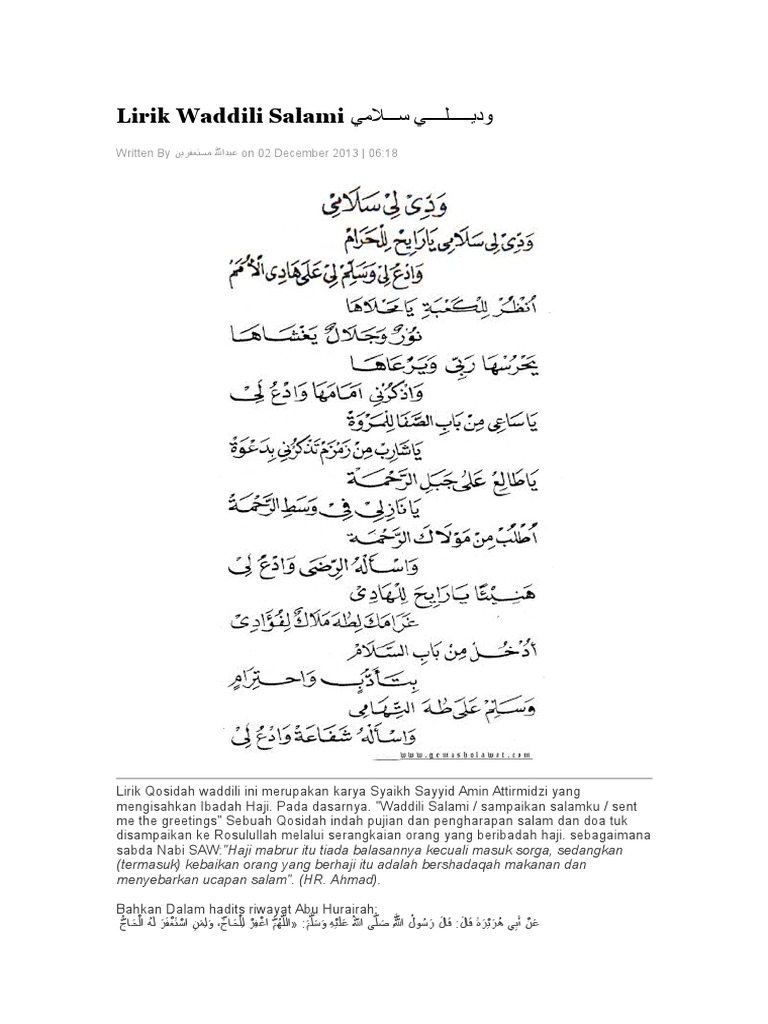 Lirik Waddili Salami وديـــلـــي ســـلامي
Written By عبدالله مستغفرين on 02 December 2013 | 06:18
وَدِّىْ لِىْ سَلَامِىْ
وَدِّىْ لِىْ سَلَامِىْ يَارَايِحْ لِلْحَرَامْ
وَادْعُ لِىْ وَسَلِّمْ لِىْ عَلَى هَادِى الْأُمَمْ
أُنْظُرْ لِلْكَعْبَةِ يَا مَحْلَاهَا
نُوْرٌ وَجَلَالٌ يَغْشَاهَا
يَحْرُسْهَا رَبِّى وَيَرْعَاهَا
وَاذْكُرْنِى اَمَامَهَا وَادْعُ لِىْ
يَا سَاعِى مِنْ بَابِ الصَّفَا لِلْمَرْوَةْ
يَا شَارِبْ مِنْ زَمْزَمْ تَذْكُرْنِى بِدَعْوَةْ
يَا طَالِعْ عَلَى جَبَلِ الرَّحْمَةْ
يَا نَازِلِىْ فِىْ وَسَطِ الرَّحْمَةْ
أُطْلُبْ مِنْ مَوْلَاكَ الرَّحْمَةْ
وَاسْأَلْهُ الرِّضَى وَادْعُ لِىْ
هَنِيْئًا يَارَايِحَ لِلْهَادِىْ
غَرَامَكَ لِطٰهَ مَلَاكٌ لِفُؤَادِىْ
أُدْخُلْ مِنْ بَابِ السَّلَامْ
بِتَأَدُّبٍ وَاحْتِرَامٍ
وَسَلِّمْ عَلَى طٰهَ التِّهَامِى
وَاسْأَلْهُ شَفَاعَةْ وَادْعُ لِىْ
www.gemasholawat.com
Lirik Qosidah waddili ini merupakan karya Syaikh Sayyid Amin Attirmidzi yang
mengisahkan Ibadah Haji. Pada dasarnya. "Waddili Salami / sampaikan salamku / sent
me the greetings" Sebuah Qosidah indah pujian dan pengharapan salam dan doa tuk
disampaikan ke Rosulullah melalui serangkaian orang yang beribadah haji. sebagaimana
sabda Nabi SAW:"Haji mabrur itu tiada balasannya kecuali masuk sorga, sedangkan
(termasuk) kebaikan orang yang berhaji itu adalah bershadaqah makanan dan
menyebarkan ucapan salam". (HR. Ahmad).
Bahkan Dalam hadits riwayat Abu Hurairah;
عَنْ أَبِي هُرَيْرَةَ قَالَ: قَالَ رَسُولُ اللَّهِ صَلَّى اللهُ عَلَيْهِ وَسَلَّمَ: «اللَّهُمَّ اغْفِرْ لِلْحَاجِّ، وَلِمَنِ اسْتَغْفَرَ لَهُ الْحَاجُّ